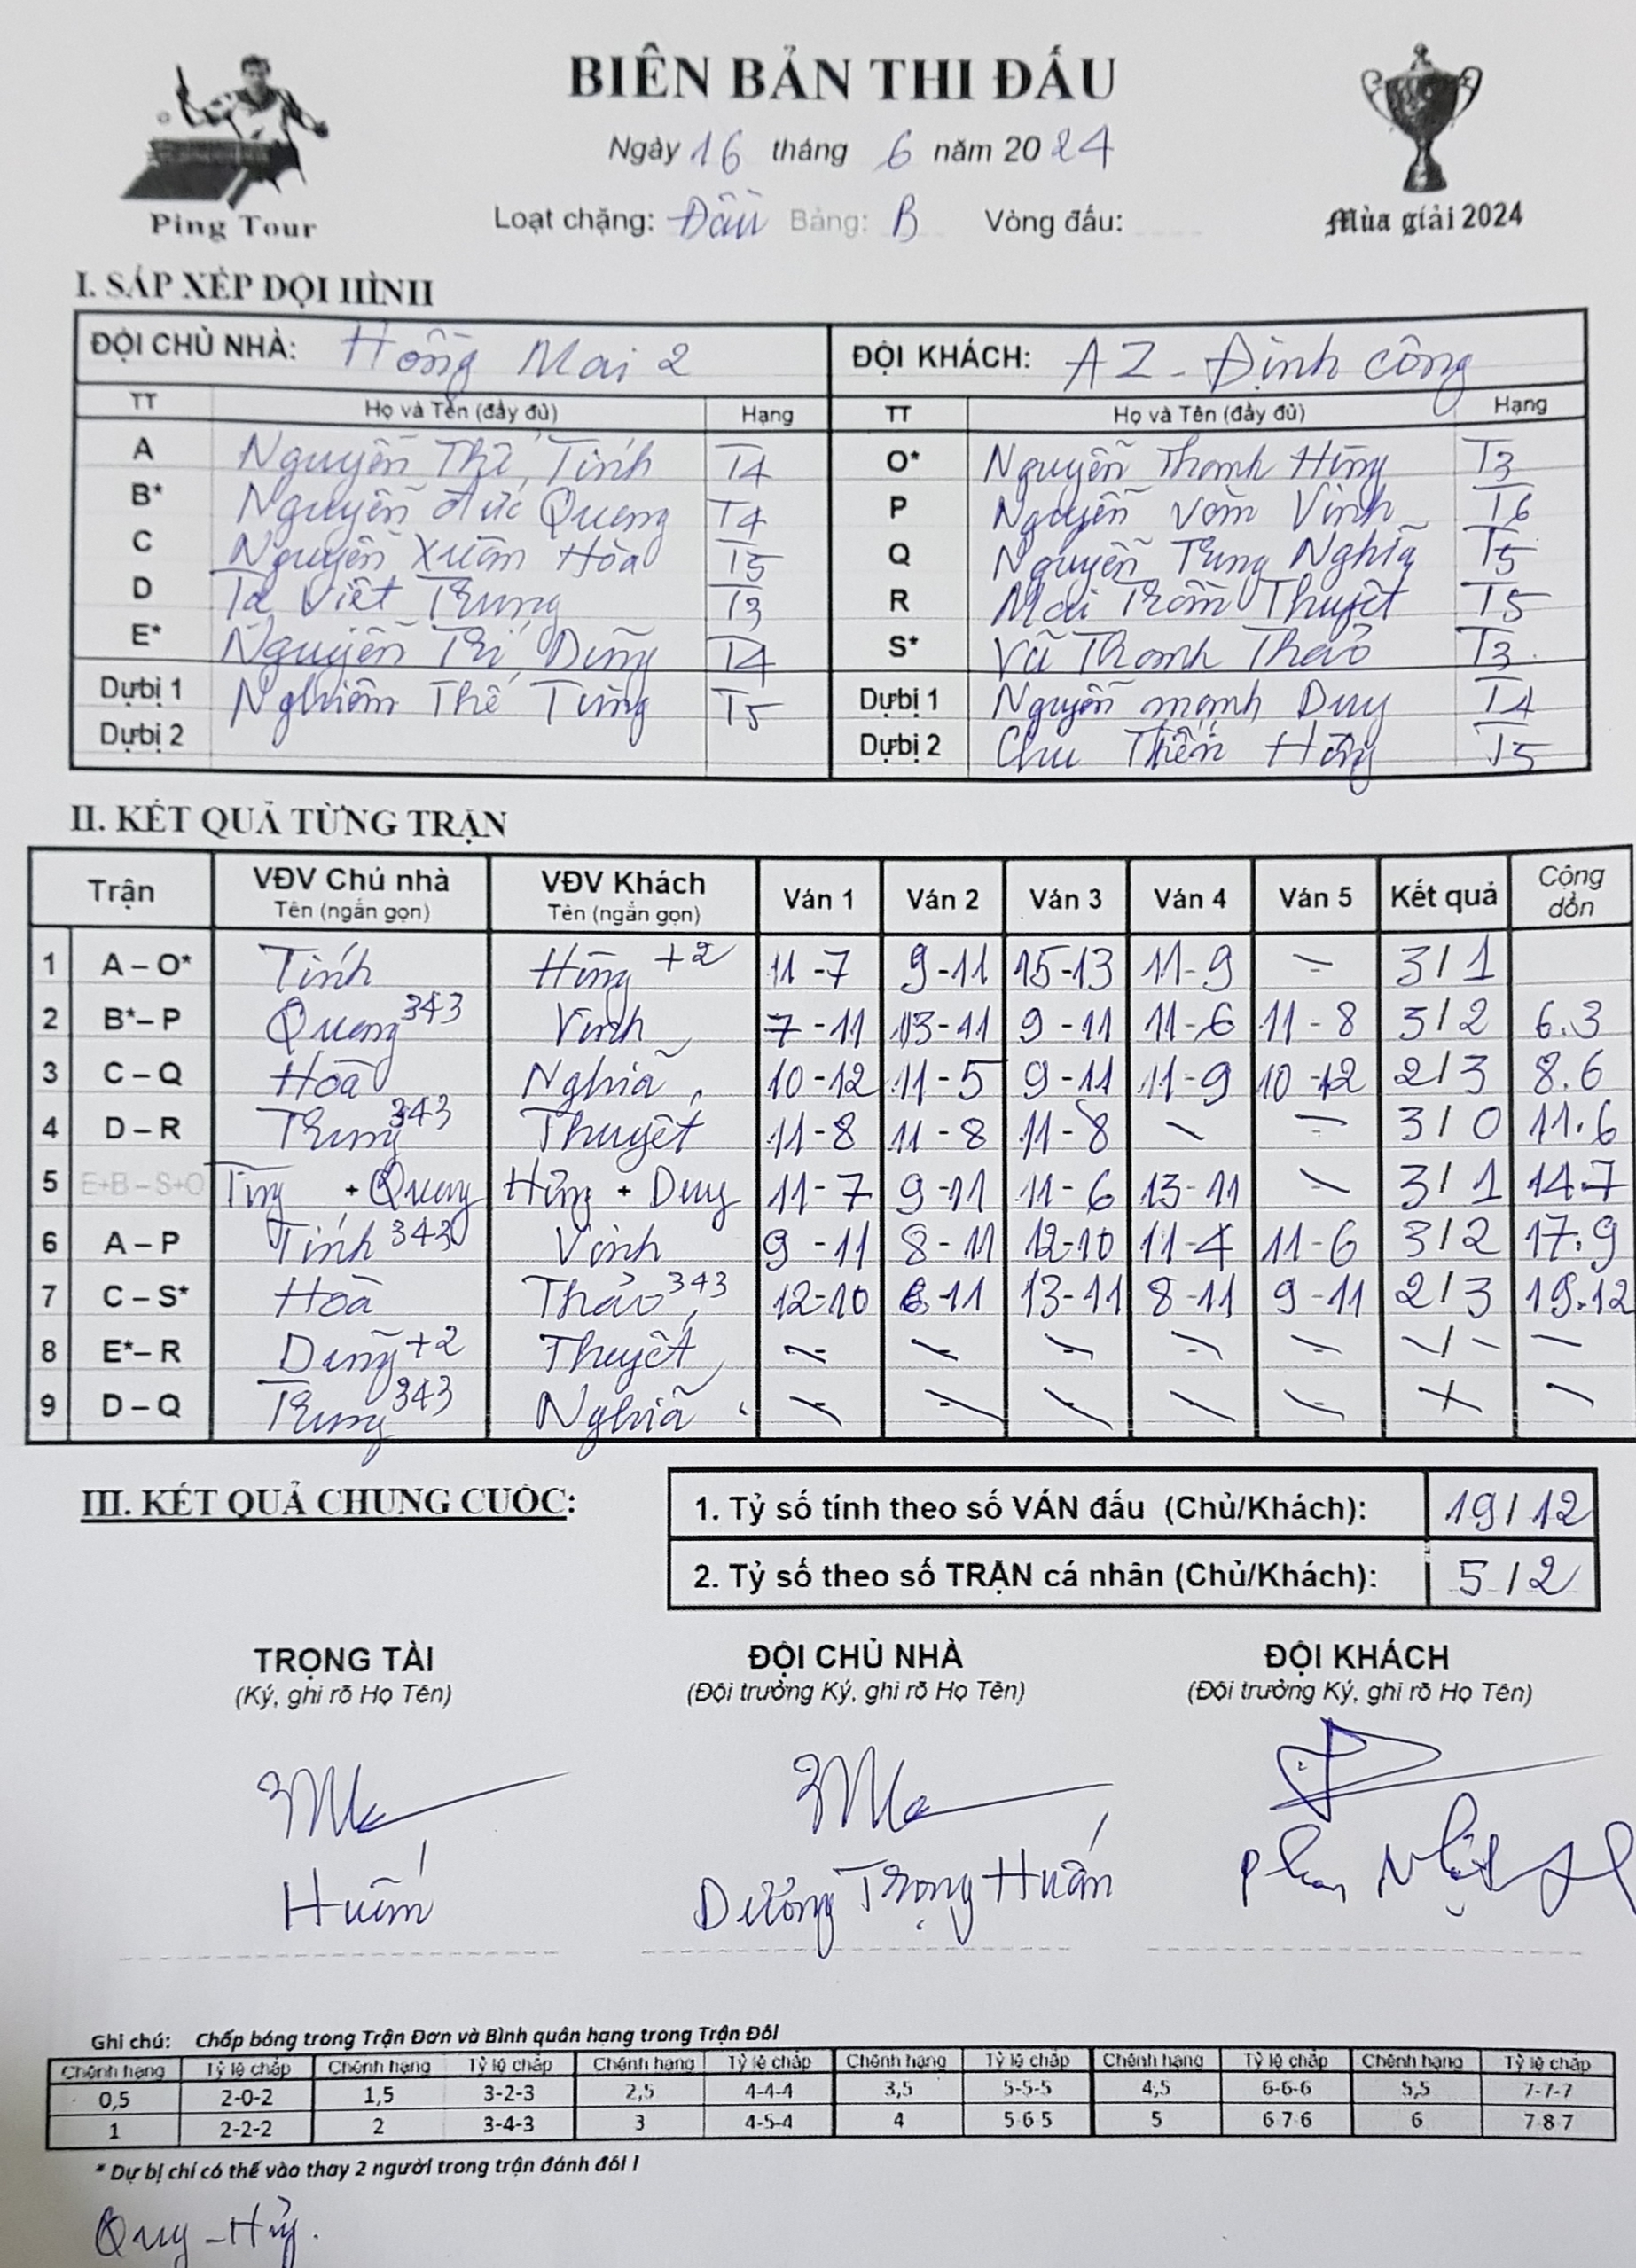 BIÊN BẢN THI ĐẤU
Ngày 16 tháng 6 năm 2024
Ping Tour
Loạt chặng: Đầu Bảng: B Vòng đấu:
Mùa giải 2024
I. SẮP XẾP ĐỘI HÌNH
ĐỘI CHỦ NHÀ: Hồng Mai 2 ĐỘI KHÁCH: AZ - Định công
TT Họ và Tên (đầy đủ) Hạng TT Họ và Tên (đầy đủ) Hạng
A Nguyễn Thế Tính T4 O* Nguyễn Thanh Hùng T3
B* Nguyễn đức Quang T4 P Nguyễn Văn Vinh T6
C Nguyễn Xuân Hòa T5 Q Nguyễn Trung Nghĩa T5
D Tạ Viết Trung T3 R Mai Trần Thuyết T5
E* Nguyễn Trí Dũng T4 S* Vũ Thanh Thảo T3
Dự bị 1 Nghiêm Thế Tùng T5 Dự bị 1 Nguyễn mạnh Duy T4
Dự bị 2 Dự bị 2 Chu Tiến T5
II. KẾT QUẢ TỪNG TRẬN
Trận VĐV Chủ nhà Tên (ngắn gọn) VĐV Khách Tên (ngắn gọn) Ván 1 Ván 2 Ván 3 Ván 4 Ván 5 Kết quả Cộng dồn
1 A – O* Tính Hùng +2 11-7 9-11 15-13 11-9 - 3/1
2 B*– P Quang 343 Vinh 7-11 13-11 9-11 11-6 11-8 3/2 6.3
3 C – Q Hoà Nghĩa 10-12 11-5 9-11 11-9 10-12 2/3 8.6
4 D – R Trung 343 Thuyết 11-8 11-8 11-8 - - 3/0 11.6
5 E+B – S+O Tùng + Quang Hùng + Duy 11-7 9-11 11-6 13-11 - 3/1 14.7
6 A – P Tính 343 Vinh 9-11 8-11 12-10 11-4 11-6 3/2 17.9
7 C – S* Hoà Thảo 343 12-10 6-11 13-11 8-11 9-11 2/3 19.12
8 E*– R Dũng +2 Thuyết - - - - - -/- -
9 D – Q Trung 343 Nghĩa - - - - - / -
III. KẾT QUẢ CHUNG CUỘC:
1. Tỷ số tính theo số VÁN đấu (Chủ/Khách): 19/12
2. Tỷ số theo số TRẬN cá nhân (Chủ/Khách): 5/2
TRỌNG TÀI ĐỘI CHỦ NHÀ ĐỘI KHÁCH
(Ký, ghi rõ Họ Tên) (Đội trưởng Ký, ghi rõ Họ Tên) (Đội trưởng Ký, ghi rõ Họ Tên)
Huấn Dương Trọng Huấn Phan Nhật
Ghi chú: Chấp bóng trong Trận Đơn và Bình quân hạng trong Trận Đôi
Chênh hạng Tỷ lệ chấp Chênh hạng Tỷ lệ chấp Chênh hạng Tỷ lệ chấp Chênh hạng Tỷ lệ chấp Chênh hạng Tỷ lệ chấp Chênh hạng Tỷ lệ chấp
0,5 2-0-2 1,5 3-2-3 2,5 4-4-4 3,5 5-5-5 4,5 6-6-6 5,5 7-7-7
1 2-2-2 2 3-4-3 3 4-5-4 4 5 6 5 5 6 7 6 6 7 8 7
* Dự bị chỉ có thể vào thay 2 người trong trận đánh đôi !
Quy - Hủy.